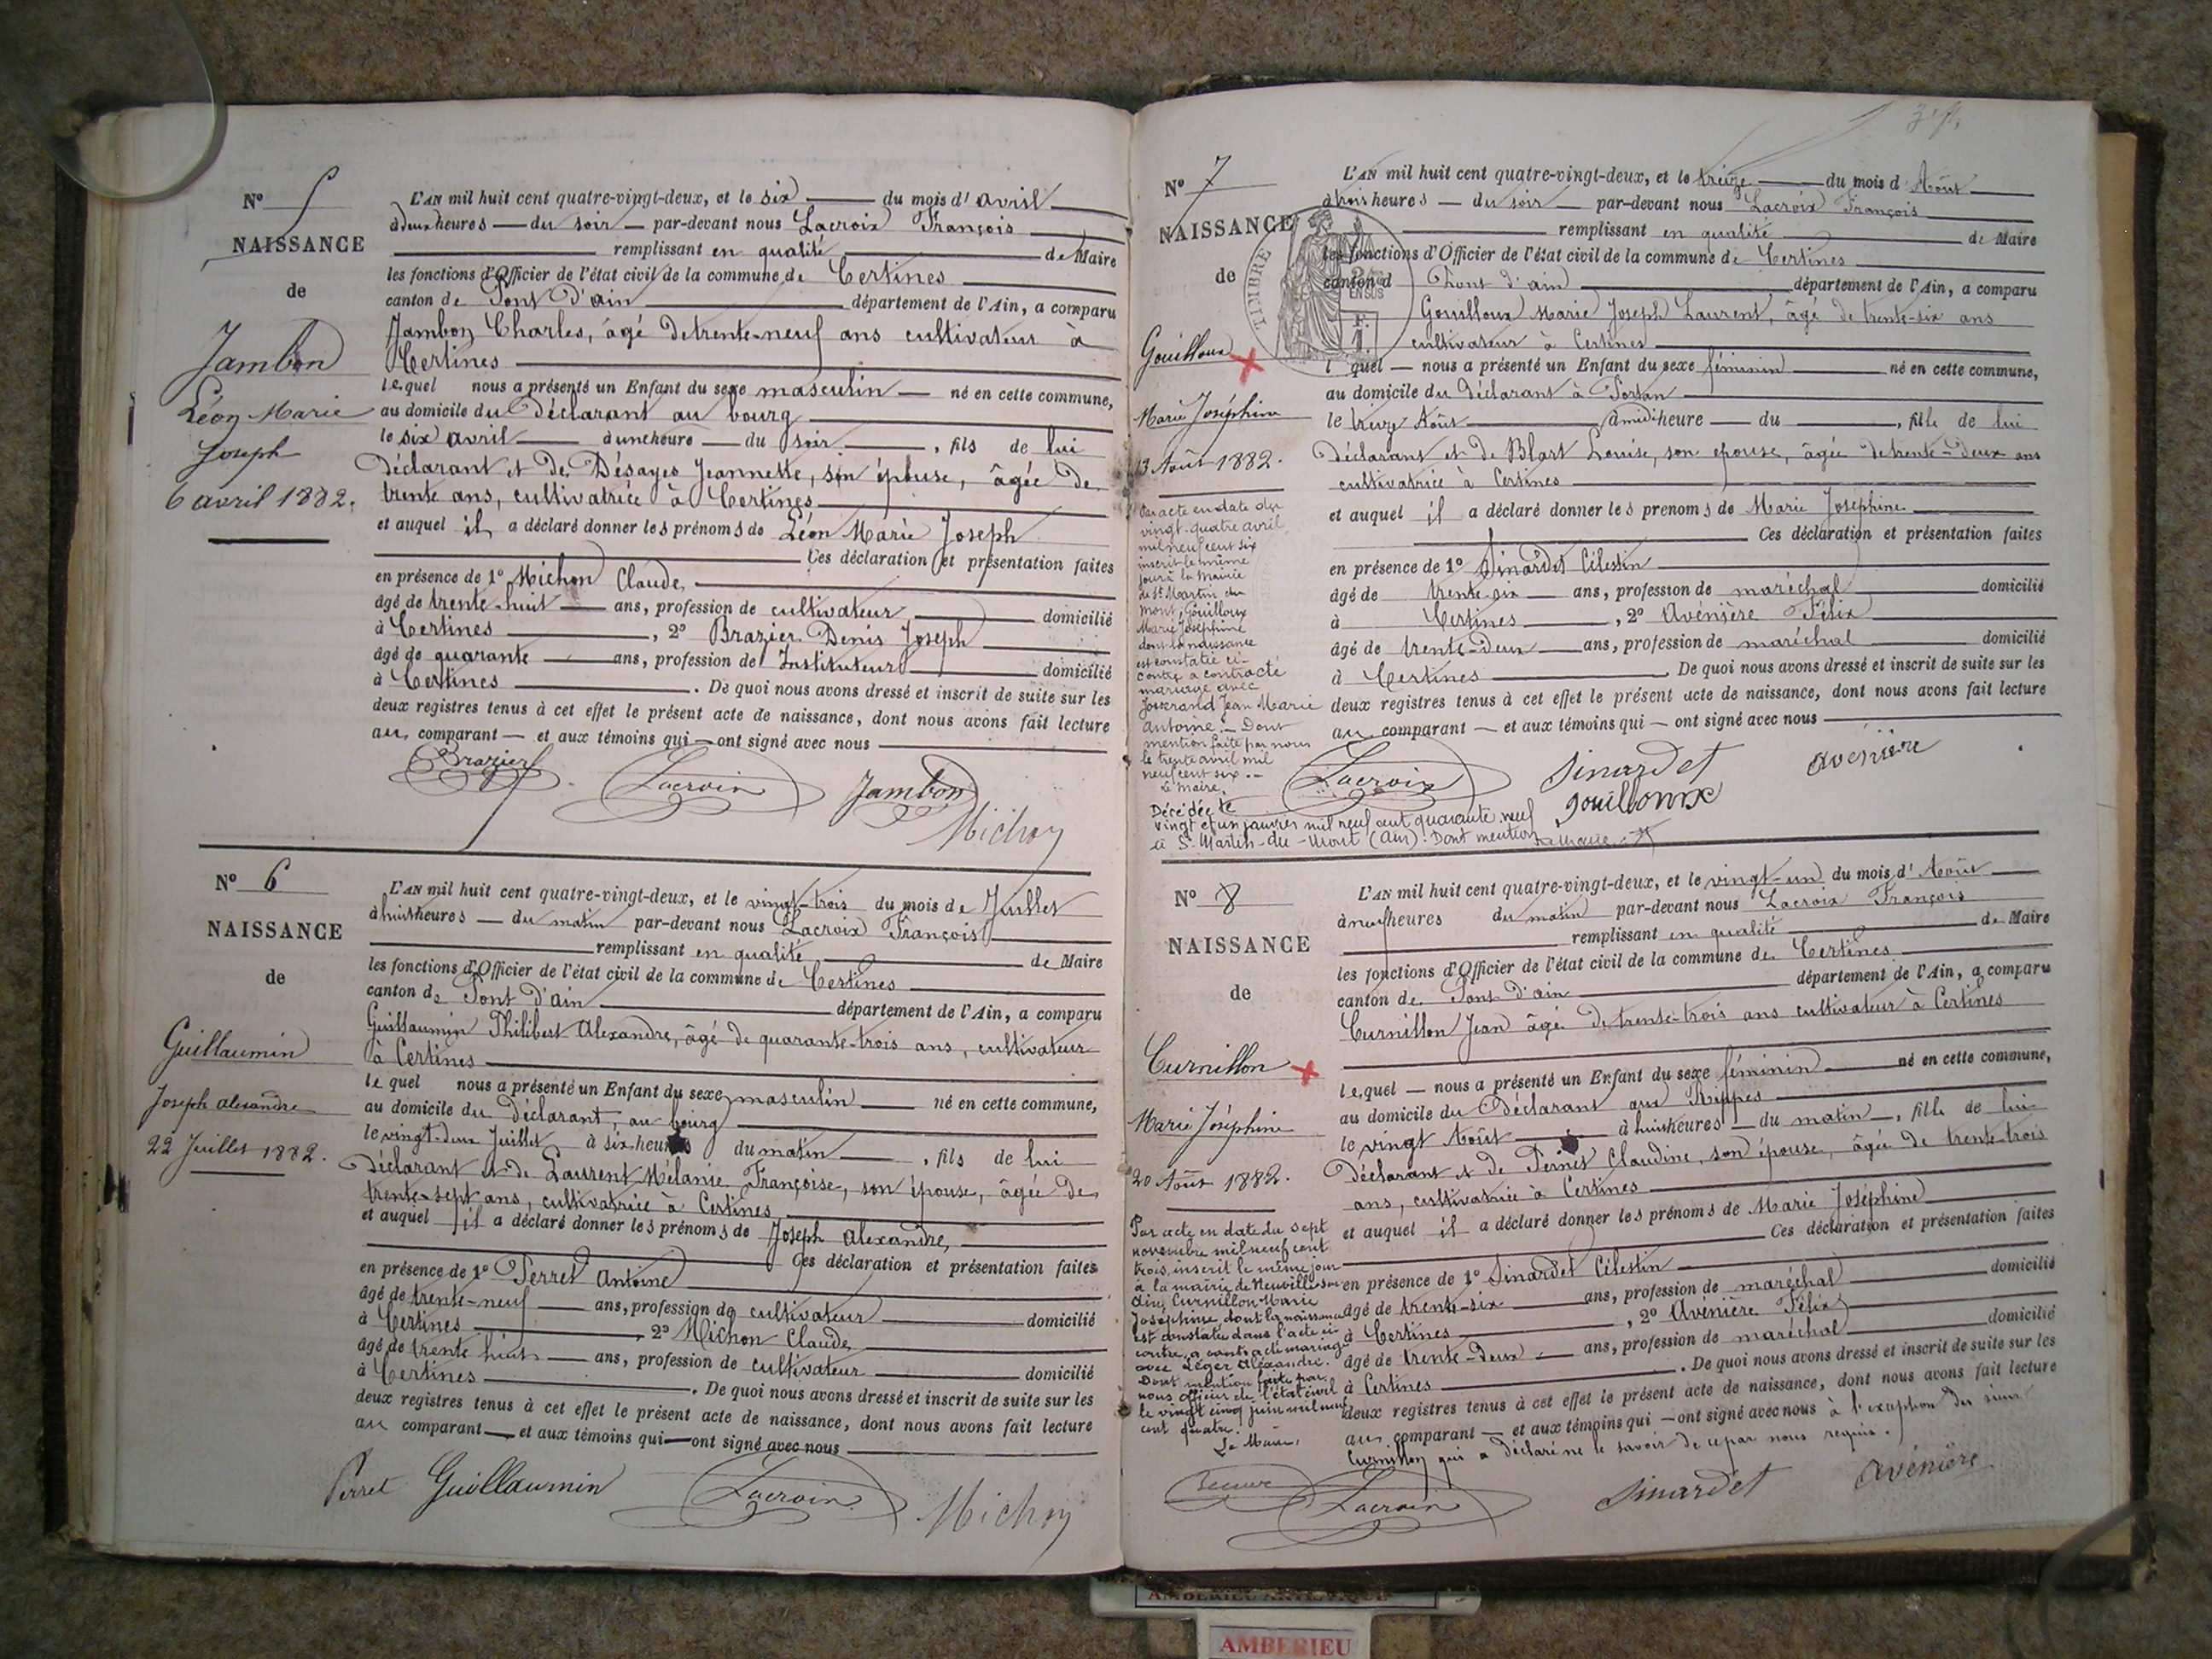 N° 5
NAISSANCE
de
Jambon
Léon Marie
Joseph
6 avril 1882.
L'AN mil huit cent quatre-vingt-deux, et le six du mois d'avril
à deux heures du soir par-devant nous Lacroix François
remplissant en qualité de Maire
les fonctions d'Officier de l'état civil de la commune de Certines
canton de Pont d'ain département de l'Ain, a comparu
Jambon Charles, âgé de trente-neuf ans cultivateur à
Certines
lequel nous a présenté un Enfant du sexe masculin né en cette commune,
au domicile du Déclarant au bourg
le six avril à une heure du soir, fils de lui
Déclarant et de Désayes Jeannette, son épouse, âgée de
trente ans, cultivatrice à Certines
et auquel il a déclaré donner les prénoms de Léon Marie Joseph
Ces déclaration et présentation faites
en présence de 1° Michon Claude,
âgé de trente-huit ans, profession de cultivateur domicilié
à Certines, 2° Brazier Denis Joseph
âgé de quarante ans, profession de Instituteur domicilié
à Certines. De quoi nous avons dressé et inscrit de suite sur les
deux registres tenus à cet effet le présent acte de naissance, dont nous avons fait lecture
au comparant et aux témoins qui ont signé avec nous
Brazier Lacroix Jambon
Michon
N° 6
NAISSANCE
de
Guillaumin
Joseph alexandre
22 Juillet 1882.
L'AN mil huit cent quatre-vingt-deux, et le vingt-trois du mois de Juillet
à huit heures du matin par-devant nous Lacroix François
remplissant en qualité de Maire
les fonctions d'Officier de l'état civil de la commune de Certines
canton de Pont d'ain département de l'Ain, a comparu
Guillaumin Philibert Alexandre, âgé de quarante-trois ans, cultivateur
à Certines
lequel nous a présenté un Enfant du sexe masculin né en cette commune,
au domicile du Déclarant, au bourg
le vingt-deux Juillet à six heures du matin, fils de lui
Déclarant et de Laurent Mélanie Françoise, son épouse, âgée de
trente-sept ans, cultivatrice à Certines
et auquel il a déclaré donner les prénoms de Joseph Alexandre,
Ces déclaration et présentation faites
en présence de 1° Perret Antoine
âgé de trente-neuf ans, profession de cultivateur domicilié
à Certines, 2° Michon Claude
âgé de trente huit ans, profession de cultivateur domicilié
à Certines. De quoi nous avons dressé et inscrit de suite sur les
deux registres tenus à cet effet le présent acte de naissance, dont nous avons fait lecture
au comparant et aux témoins qui ont signé avec nous
Perret Guillaumin Lacroix Michon
N° 7
NAISSANCE
de
TIMBRE
EN SUS
Gouilloux
Marie Joséphine
13 Août 1882.
Par acte en date du
vingt-quatre avril
mil neuf cent six
inscrit le même
jour à la Mairie
de St Martin du
Mont, Gouilloux
Marie Joséphine
dont la naissance
est constatée ci-
contre a contracté
mariage avec
Josserand Jean Marie
Antoine. Dont
mention faite par nous
le trente avril mil
neuf cent six.
Le Maire,
Décédée le
vingt et un janvier mil neuf cent quarante neuf
à St Martin-du-Mont (Ain). Dont mention
L'AN mil huit cent quatre-vingt-deux, et le treize du mois d'Août
à trois heures du soir par-devant nous Lacroix François
remplissant en qualité de Maire
les fonctions d'Officier de l'état civil de la commune de Certines
canton d Pont d'ain département de l'Ain, a comparu
Gouilloux Marie Joseph Laurent, âgé de trente-six ans
cultivateur à Certines
lequel nous a présenté un Enfant du sexe féminin né en cette commune,
au domicile du Déclarant à
le treize Août à midi heure du, fille de lui
Déclarant et de Blart Louise, son épouse, âgée de trente-deux ans
cultivatrice à Certines
et auquel il a déclaré donner les prénoms de Marie Joséphine
Ces déclaration et présentation faites
en présence de 1° Sinardet Célestin
âgé de trente-six ans, profession de maréchal domicilié
à Certines, 2° Avénière Félix
âgé de trente-deux ans, profession de maréchal domicilié
à Certines. De quoi nous avons dressé et inscrit de suite sur les
deux registres tenus à cet effet le présent acte de naissance, dont nous avons fait lecture
au comparant et aux témoins qui ont signé avec nous
Lacroix Sinardet avénière
gouilloux
N° 8
NAISSANCE
de
Curnillon
Marie Joséphine
20 Août 1882.
Par acte en date du sept
novembre mil neuf cent
trois, inscrit le même jour
à la mairie de Neuville sur
Ain, Curnillon Marie
Joséphine dont la naissance
est constatée dans l'acte ci-
contre, a contracté mariage
avec Léger Alexandre.
Dont mention faite par
nous officier de l'état civil
le vingt cinq juin mil neuf
cent quatre.
Le Maire,
L'AN mil huit cent quatre-vingt-deux, et le vingt-un du mois d'Août
à neuf heures du matin par-devant nous Lacroix François
remplissant en qualité de Maire
les fonctions d'Officier de l'état civil de la commune de Certines
canton de Pont d'ain département de l'Ain, a comparu
Curnillon Jean âgé de trente-trois ans cultivateur à Certines
lequel nous a présenté un Enfant du sexe féminin né en cette commune,
au domicile du Déclarant aux Rippes
le vingt Août à huit heures du matin, fille de lui
Déclarant et de Pernet Claudine, son épouse, âgée de trente-trois
ans, cultivatrice à Certines
et auquel il a déclaré donner les prénoms de Marie Joséphine
Ces déclaration et présentation faites
en présence de 1° Sinardet Célestin
âgé de trente-six ans, profession de maréchal domicilié
à Certines, 2° Avénière Félix
âgé de trente-deux ans, profession de maréchal domicilié
à Certines. De quoi nous avons dressé et inscrit de suite sur les
deux registres tenus à cet effet le présent acte de naissance, dont nous avons fait lecture
au comparant et aux témoins qui ont signé avec nous à l'exception du sieur
Curnillon qui a déclaré ne le savoir de ce par nous requis.
Lacroix Sinardet avénière
AMBERIEU